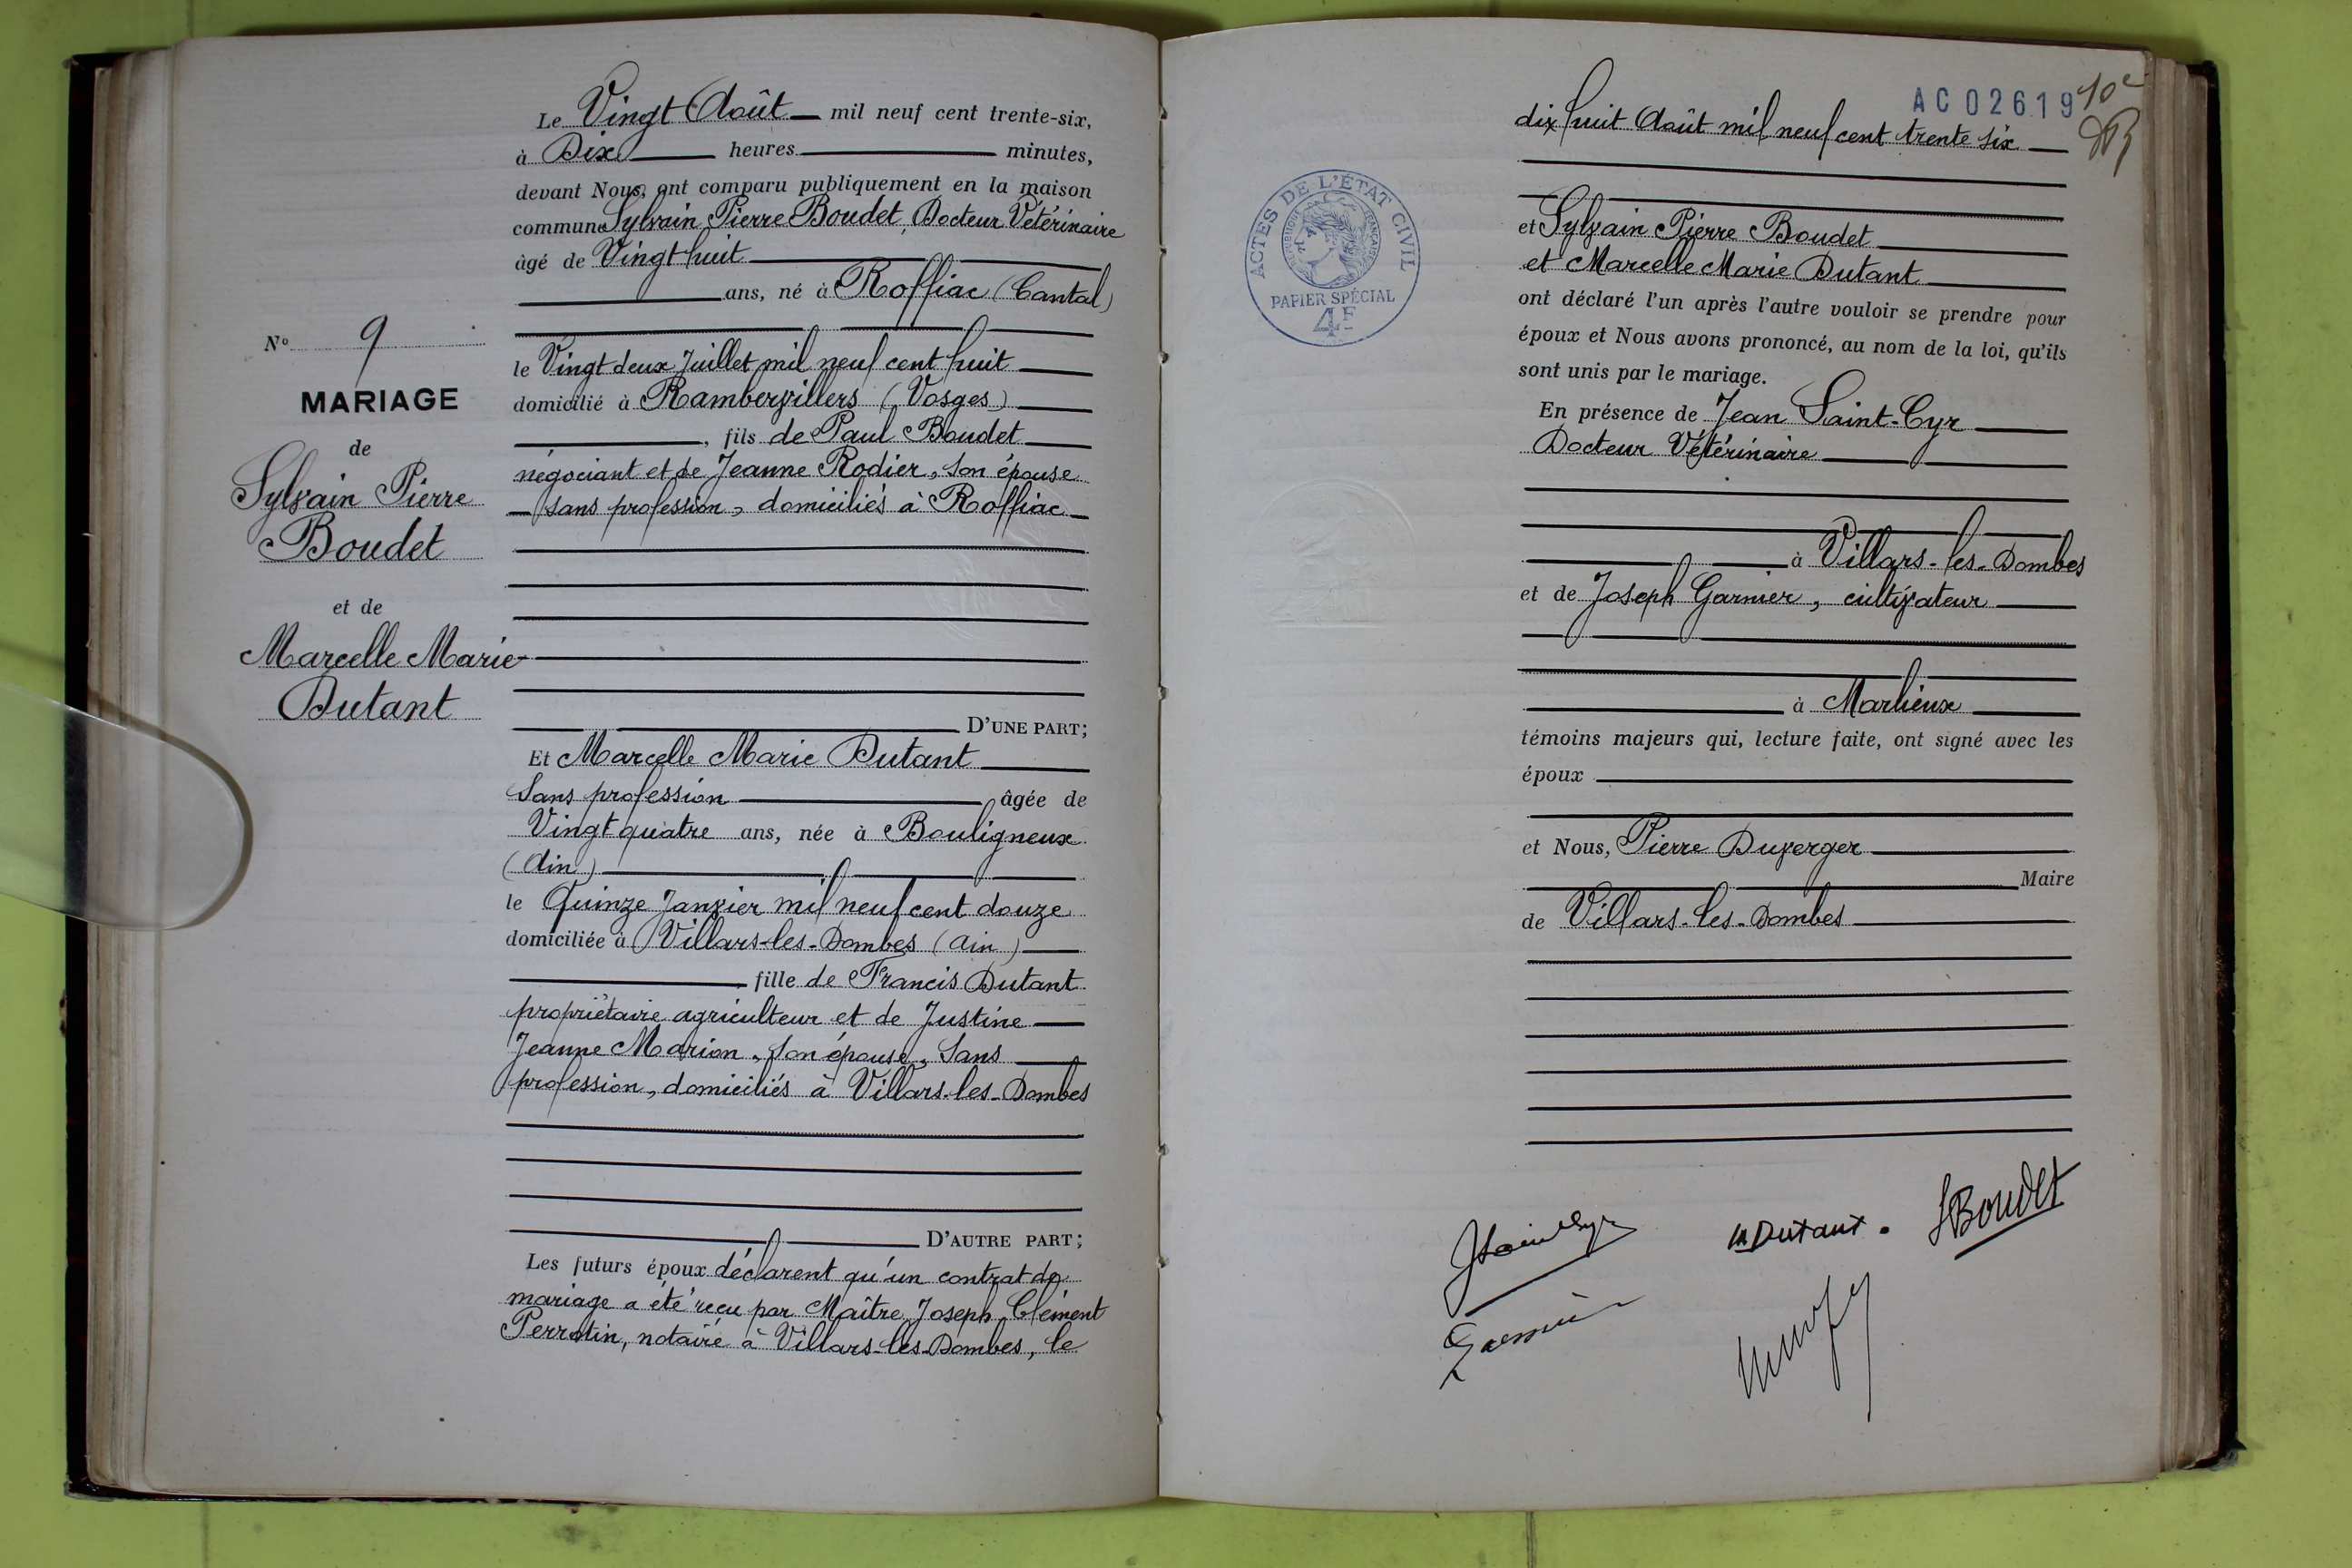 Le Vingt Août mil neuf cent trente-six,
à Dix heures minutes,
devant Nous, ont comparu publiquement en la maison
commune Sylvain Pierre Boudet, Docteur Vétérinaire
âgé de Vingt huit
ans, né à Roffiac (Cantal)
le Vingt deux Juillet mil neuf cent huit
domicilié à Rambervillers (Vosges)
, fils de Paul Boudet
négociant et de Jeanne Rodier, son épouse
sans profession, domiciliés à Roffiac
D'UNE PART;
Et Marcelle Marie Dutant
Sans profession âgée de
Vingt quatre ans, née à Bouligneux
(Ain)
le Quinze Janvier mil neuf cent douze
domiciliée à Villars-les-Dombes (Ain)
, fille de Francis Dutant
propriétaire agriculteur et de Justine
Jeanne Marion, son épouse, Sans
profession, domiciliés à Villars-les-Dombes
D'AUTRE PART;
Les futurs époux déclarent qu'un contrat de
mariage a été reçu par Maître Joseph Clément
Perratin, notaire à Villars-les-Dombes, le
N° 9
MARIAGE
de
Sylvain Pierre
Boudet
et de
Marcelle Marie
Dutant
AC 02619
10e
dix huit Août mil neuf cent trente six
et Sylvain Pierre Boudet
et Marcelle Marie Dutant
ont déclaré l'un après l'autre vouloir se prendre pour
époux et Nous avons prononcé, au nom de la loi, qu'ils
sont unis par le mariage.
En présence de Jean Saint-Cyr
Docteur Vétérinaire
à Villars-les-Dombes
et de Joseph Garnier, cultivateur
à Marlieux
témoins majeurs qui, lecture faite, ont signé avec les
époux
et Nous, Pierre Duverger
Maire
de Villars-les-Dombes
ACTES DE L'ÉTAT CIVIL
RÉPUBLIQUE FRANÇAISE
PAPIER SPÉCIAL
4F
JSaint Cyr
M Dutant.
SBoudet
Garnier